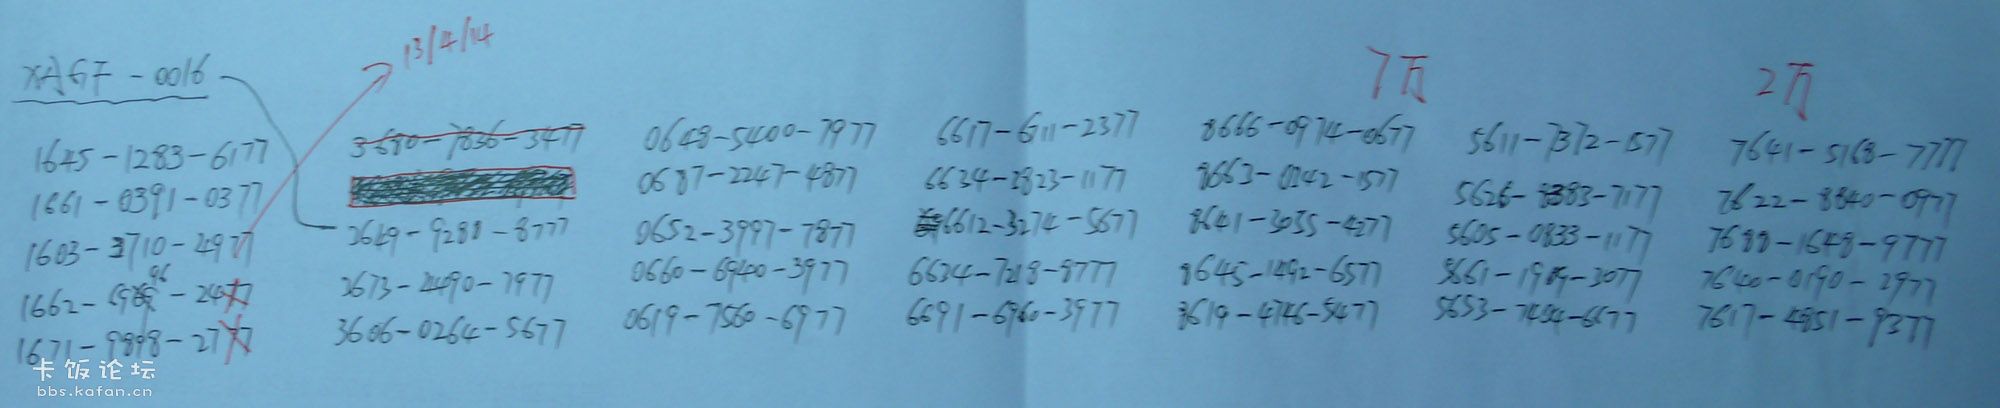 13/4/14
XAGF-0016
7万
2万
1645-1283-6177
1661-0391-0377
1603-3710-4977
1662-
1671-9898-2777
3680-7836-3477
3649-9288-8777
3673-4490-7977
3606-0264-5677
0648-5400-7977
0687-2247-4877
0652-3997-7877
0660-6940-3977
0619-7560-6977
6617-6711-2377
6634-2823-1177
6612-3274-5677
6634-7218-8777
6691-6960-3977
8666-0974-0677
8663-0242-1577
8641-3035-4277
8645-1492-6577
8619-4746-5477
5611-7372-1577
5626-8383-7177
5605-0833-1177
5661-1989-3077
5653-7454-6677
7641-5168-7777
7622-8840-0977
7688-1648-9777
7640-0190-2977
7617-4851-9377
卡饭论坛
bbs.kafan.cn